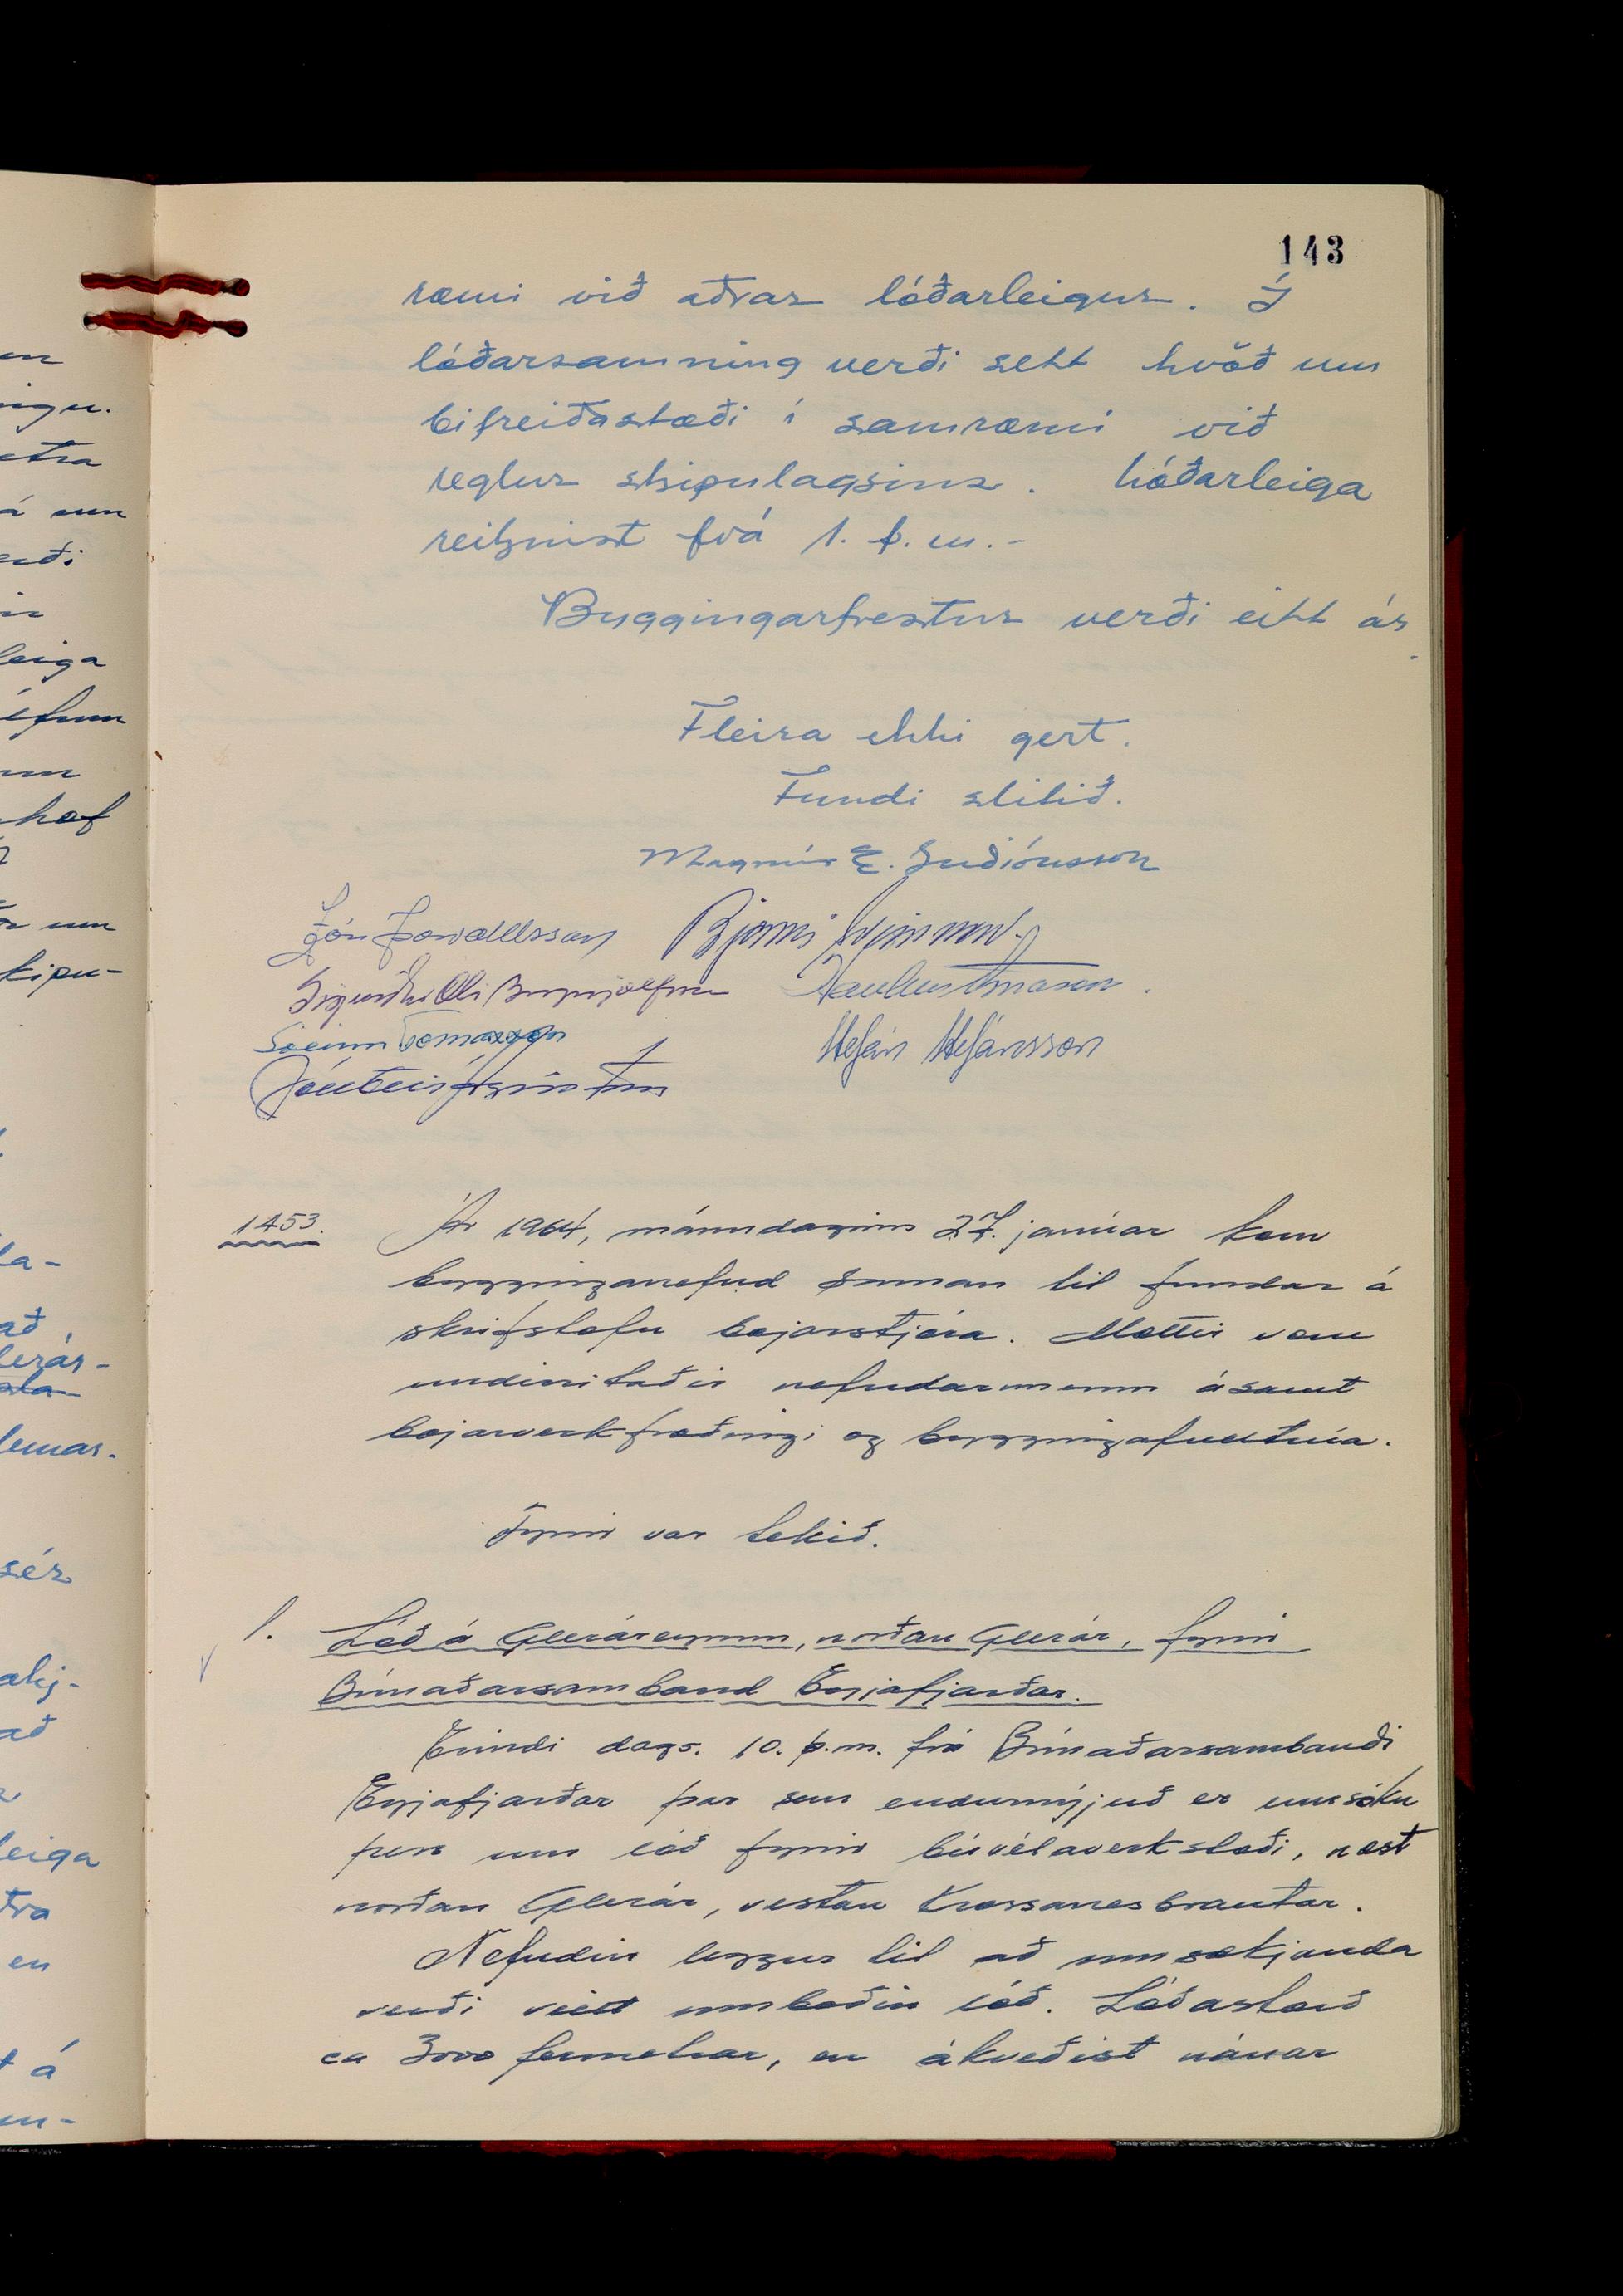 143
ræmi við aðrar lóðarleigur. Í
lóðarsamning verði sett kvöð um
bifreiðastæði í samræmi við
reglur skipulagsins. Lóðarleiga
reiknist frá 1. þ.m.-
Byggingarfrestur verði eitt ár.
Fleira ekki gert.
Fundi slitið.
Magnús E. Guðjónsson
Jón Þorvaldsson Bjarni
Sigurður Óli Brynjólfsson Haukur Árnason
Sveinn Tómasson Stefán Stefánsson
Jón Geir Ágústsson
1453. Ár 1964, mánudaginn 27. janúar kom
bygginganefnd saman til fundar á
skrifstofu bæjarstjóra. Mættir voru
undirritaðir nefndarmenn ásamt
bæjarverkfræðingi og byggingafulltrúa.
Fyrir var tekið.
1. Lóð á Gleráreyrum, norðan Glerár, fyrir
Búnaðarsamband Eyjafjarðar.
Erindi dags. 10. þ.m. frá Búnaðarsambandi
Eyjafjarðar þar sem endurnýjuð er umsókn
þess um lóð fyrir búvélaverkstæði, næst
norðan Glerár, vestan Krossanesbrautar.
Nefndin leggur til að umsækjanda
verði veitt umbeðin lóð. Lóðastærð
ca 3000 fermetrar, en ákveðist nánar
en
á um
leiga
um
hæf
kipu-
la-
að
lerár-
sér
að
leiga
en
á